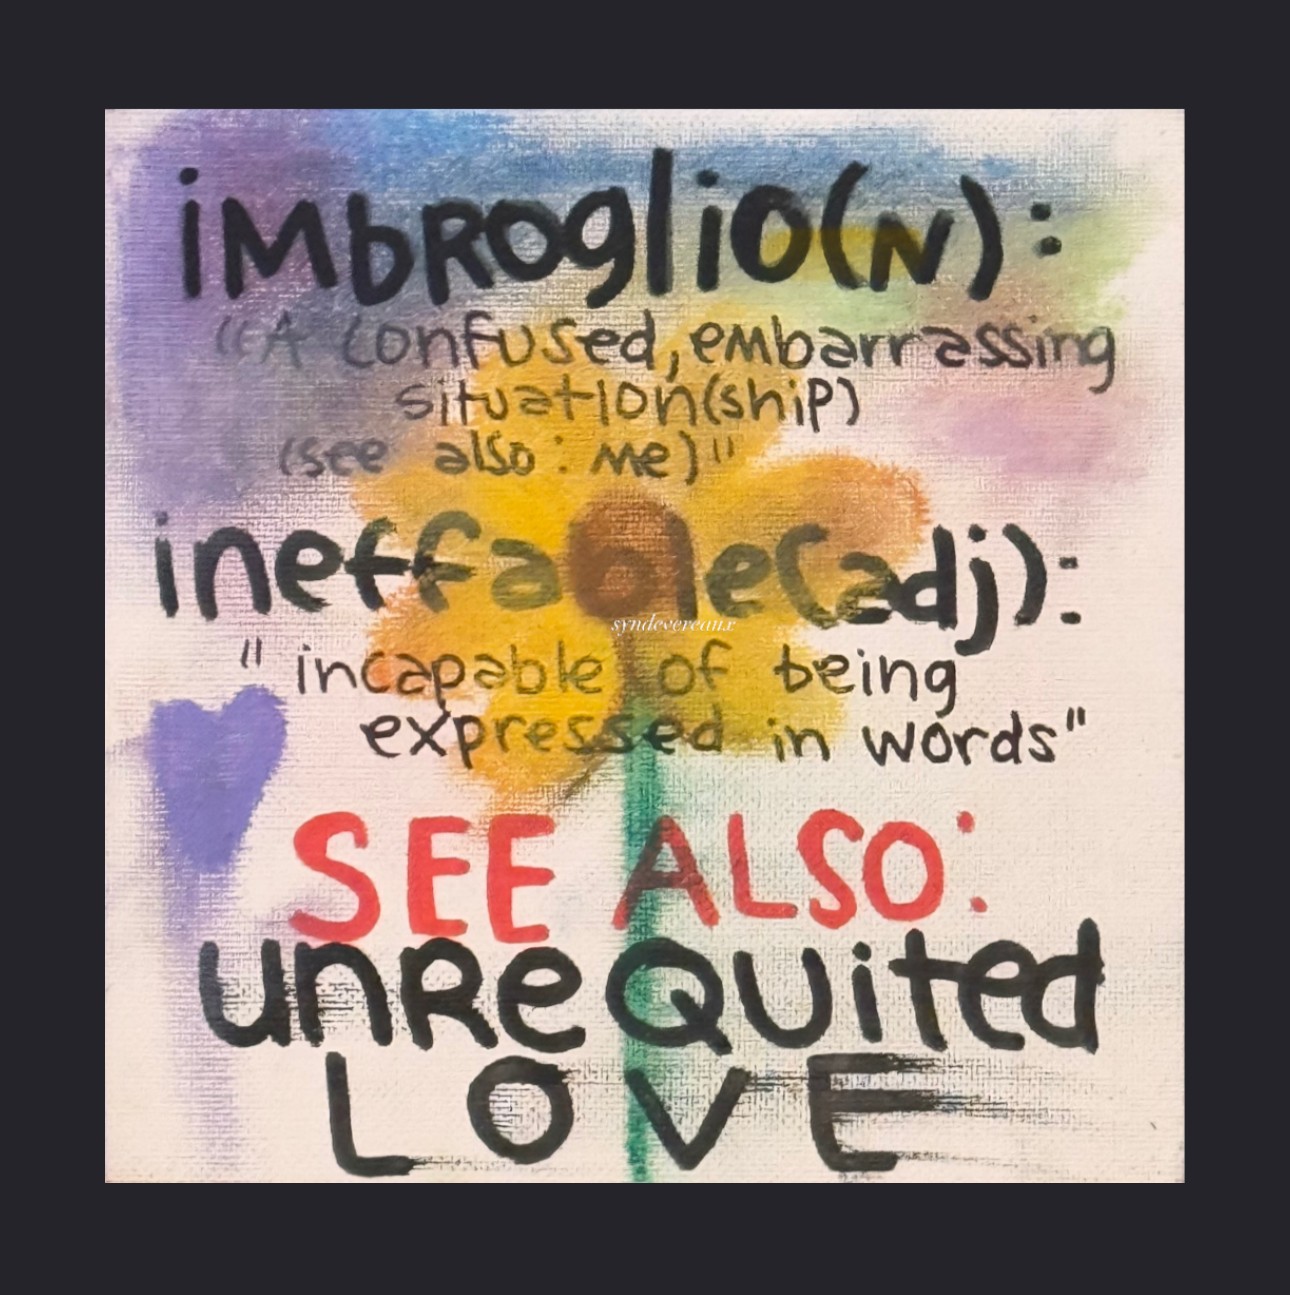 imbroglio(N):
"A confused, embarrassing
situation(ship)
(see also: me)"
ineffable(adj):
syndevereaux
"incapable of being
expressed in words"
SEE ALSO:
unrequited
LOVE